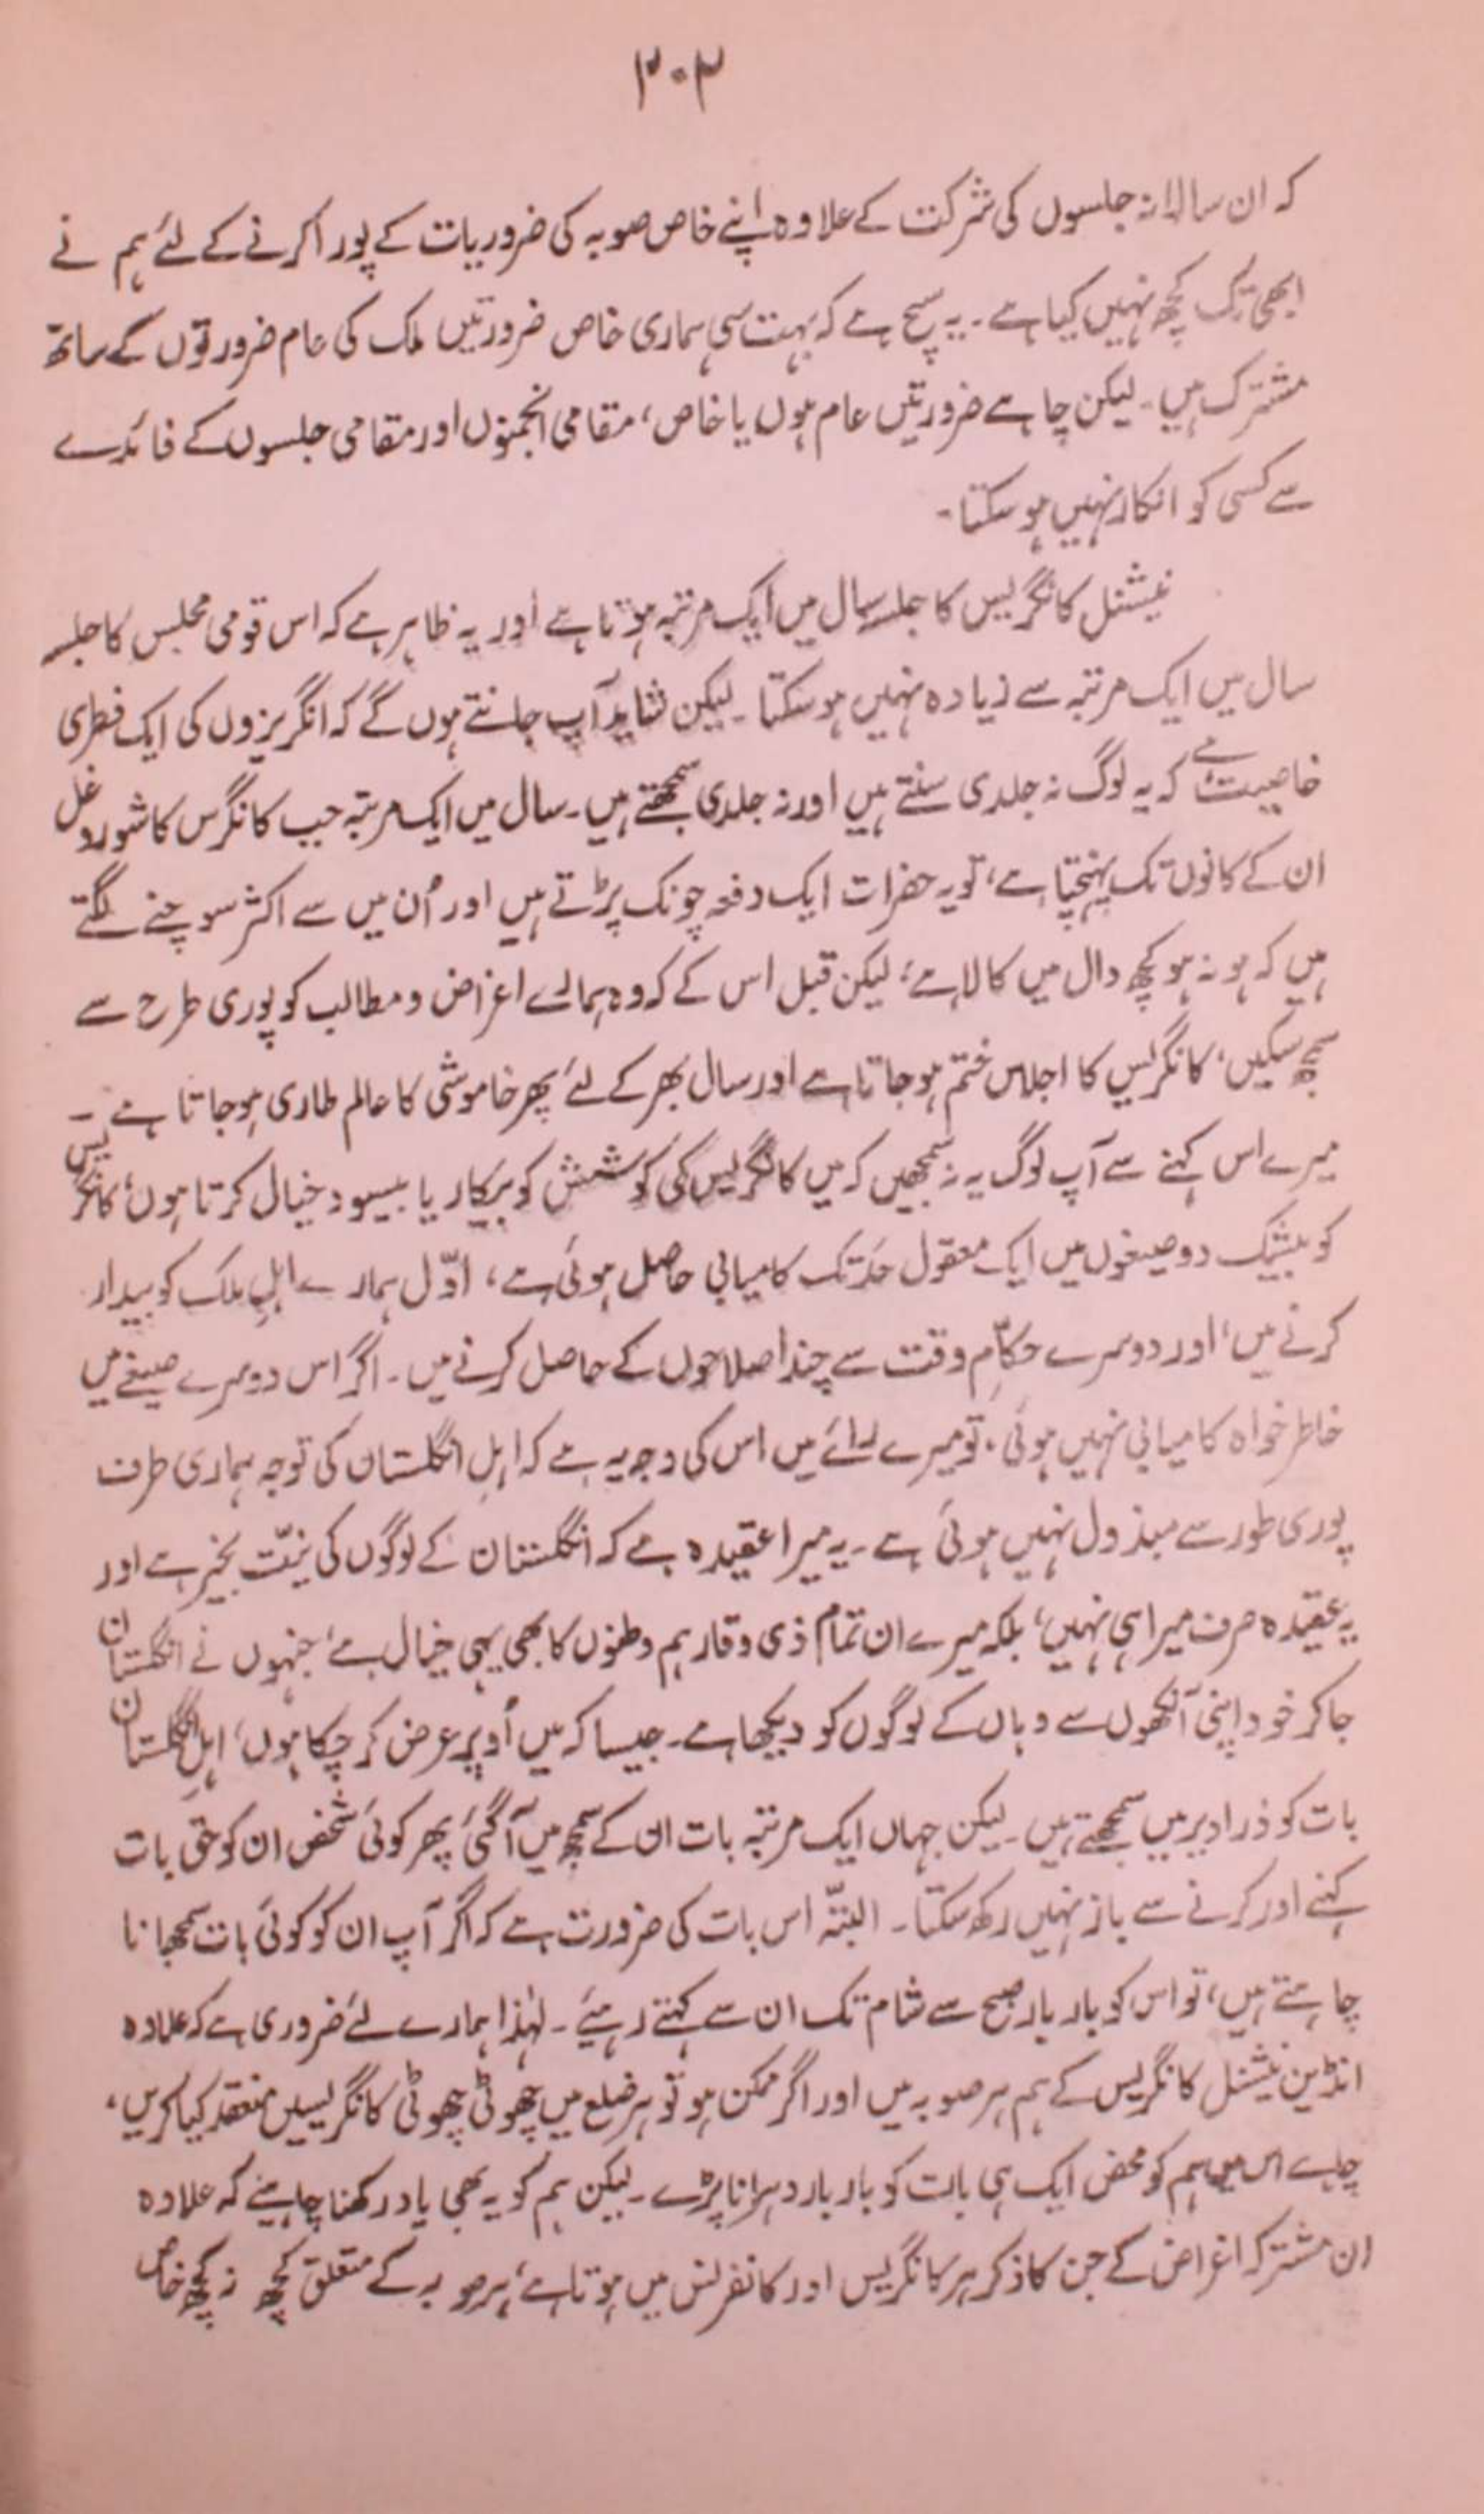 ۳۰۲
کہ ان سالانہ جلسوں کی شرکت کے علاوہ اپنے خاص صوبہ کی ضروریات کے پورا کرنے کے لئے ہم نے
ابھی تک کچھ نہیں کیا ہے۔ یہ سچ ہے کہ بہت سی ہماری خاص ضرورتیں ملک کی عام ضرورتوں کے ساتھ
مشترک ہیں۔ لیکن چاہے ضرورتیں عام ہوں یا خاص، مقامی انجمنوں اور مقامی جلسوں کے فائدے
سے کسی کو انکار نہیں ہو سکتا۔
نیشنل کانگریس کا جلسہ سال میں ایک مرتبہ ہوتا ہے اور یہ ظاہر ہے کہ اس قومی مجلس کا جلسہ
سال میں ایک مرتبہ سے زیادہ نہیں ہو سکتا۔ لیکن شاید آپ جانتے ہوں گے کہ انگریزوں کی ایک فطری
خاصیت ہے کہ یہ لوگ نہ جلدی سنتے ہیں اور نہ جلدی سمجھتے ہیں۔ سال میں ایک مرتبہ جب کانگرس کا شور و غل
ان کے کانوں تک پہنچتا ہے، تو یہ حضرات ایک دفعہ چونک پڑتے ہیں اور اُن میں سے اکثر سوچنے لگتے
ہیں کہ ہو نہ ہو کچھ دال میں کالا ہے، لیکن قبل اس کے کہ وہ ہمارے اغراض و مطالب کو پوری طرح سے
سمجھ سکیں، کانگریس کا اجلاس ختم ہو جاتا ہے اور سال بھر کے لئے پھر خاموشی کا عالم طاری ہو جاتا ہے۔
میرے اس کہنے سے آپ لوگ یہ نہ سمجھیں کہ میں کانگریس کی کوشش کو بیکار یا بیسود خیال کرتا ہوں، کانگریس
کو بیشک دو صیغوں میں ایک معقول حد تک کامیابی حاصل ہوئی ہے، اوّل ہمارے اہلِ ملک کو بیدار
کرنے میں، اور دوسرے حکّامِ وقت سے چند اصلاحوں کے حاصل کرنے میں۔ اگر اس دوسرے صیغے میں
خاطر خواہ کامیابی نہیں ہوئی، تو میرے رائے میں اس کی وجہ یہ ہے کہ اہلِ انگلستان کی توجہ ہماری طرف
پوری طور سے مبذول نہیں ہوئی ہے۔ یہ میرا عقیدہ ہے کہ انگلستان کے لوگوں کی نیّت بخیر ہے اور
یہ عقیدہ صرف میرا ہی نہیں، بلکہ میرے ان تمام ذی وقار ہم وطنوں کا بھی یہی خیال ہے، جنہوں نے انگلستان
جا کر خود اپنی آنکھوں سے وہاں کے لوگوں کو دیکھا ہے۔ جیسا کہ میں اُوپر عرض کر چکا ہوں، اہلِ انگلستان
بات کو ذرا دیر میں سمجھتے ہیں۔ لیکن جہاں ایک مرتبہ بات ان کے سمجھ میں آگئی، پھر کوئی شخص ان کو حق بات
کہنے اور کرنے سے باز نہیں رکھ سکتا۔ البتّہ اس بات کی ضرورت ہے کہ اگر آپ ان کو کوئی بات سمجھانا
چاہتے ہیں، تو اس کو بار بار صبح سے شام تک ان سے کہتے رہیئے۔ لہٰذا ہمارے لئے ضروری ہے کہ علاوہ
انڈین نیشنل کانگریس کے ہم ہر صوبہ میں اور اگر ممکن ہو تو ہر ضلع میں چھوٹی چھوٹی کانگریسیں منعقد کیا کریں،
چاہے اس میں ہم کو محض ایک ہی بات کو بار بار دہرانا پڑے۔ لیکن ہم کو یہ بھی یاد رکھنا چاہیئے کہ علاوہ
ان مشترکہ اغراض کے جن کا ذکر ہر کانگریس اور کانفرنس میں ہوتا ہے، ہر صوبہ کے متعلق کچھ نہ کچھ خاص